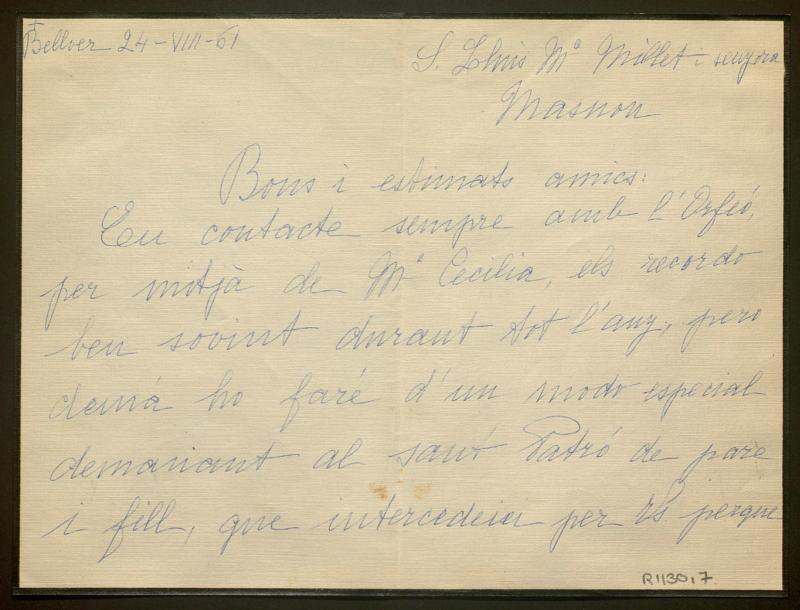 Bellver 24-VIII-61
S. Lluis Mª Millet i senyora
Masnou
Bons i estimats amics:
En contacte sempre amb l'Orfeó,
per mitjà de Mª Cecilia, els recordo
ben sovint durant tot l'any, pero
demá ho faré d'un modo especial
demanant al sant Patró de pare
i fill, que intercedeixi per Vs perque
R1130,7